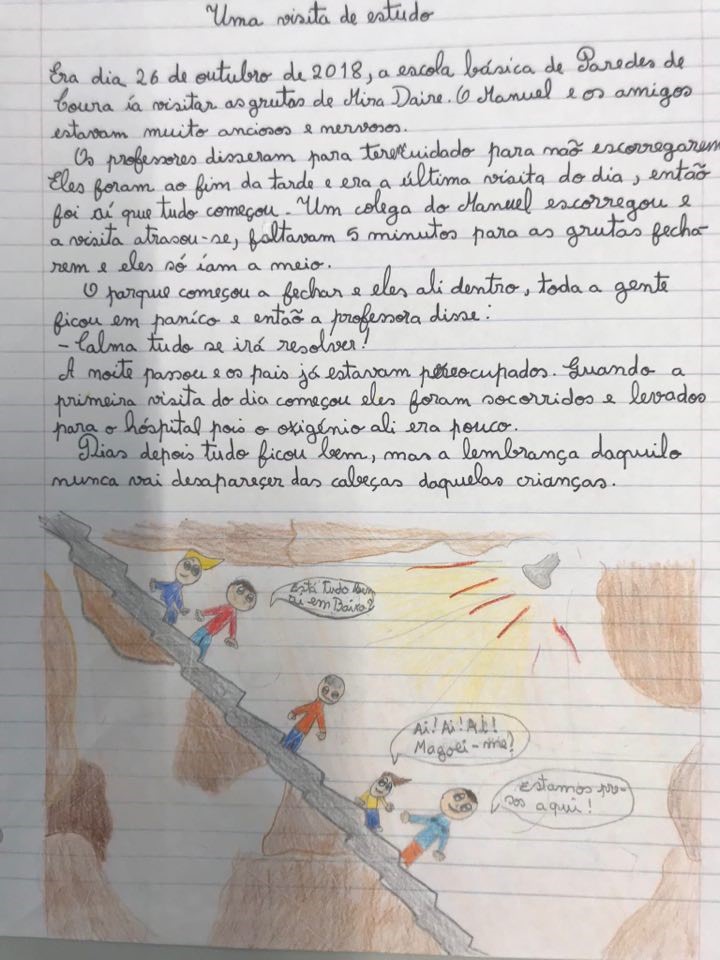 Uma visita de estudo
Era dia 26 de outubro de 2018, a escola básica de Paredes de
Coura ía visitar as grutas de Mira Daire. O Manuel e os amigos
estavam muito anciosos e nervosos.
Os professores disseram para terem cuidado para naõ escorregarem
Eles foram ao fim da tarde e era a última visita do dia, então
foi aí que tudo começou. Um colega do Manuel escorregou e
a visita atrasou-se, faltavam 5 minutos para as grutas fecha-
rem e eles só íam a meio.
O parque começou a fechar e eles ali dentro, toda a gente
ficou em paníco e entaõ a professora disse:
- Calma tudo se irá resolver!
A noite passou e os pais já estavam preocupados. Quando a
primeira visita do dia começou eles foram socorridos e levados
para o hóspital pois o oxigénio ali era pouco.
Dias depois tudo ficou bem, mas a lembrança daquilo
nunca vai desapareçer das cabeças daquelas crianças.
Está tudo bem
ai em Baixo?
Ai! Ai! Ai!
Magoei-me!
Estamos pre-
sos aqui!